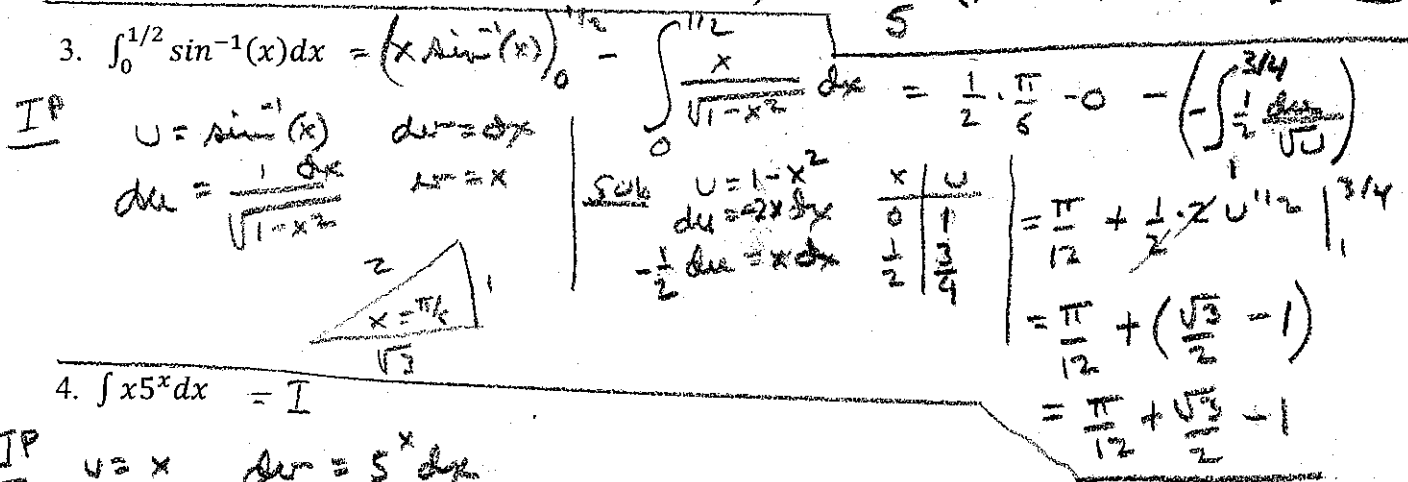 5
3. ∫₀^{1/2} sin⁻¹(x)dx = (x sin⁻¹(x))₀^{1/2} - ∫₀^{1/2} x/√(1-x²) dx = 1/2 · π/6 - 0 - (-∫₁^{3/4} 1/2 du/√u)
IP u = sin⁻¹(x) dv = dx
du = 1 dx/√(1-x²) v = x
sub u = 1-x²
du = -2x dx
-1/2 du = x dx
x | u
0 | 1
1/2 | 3/4
= π/12 + 1/2 · 2 u^{1/2} |₁^{3/4}
2 1 x = π/6 √3
= π/12 + (√3/2 - 1)
= π/12 + √3/2 - 1
4. ∫ x5ˣdx = I
IP u = x dv = 5ˣ dx